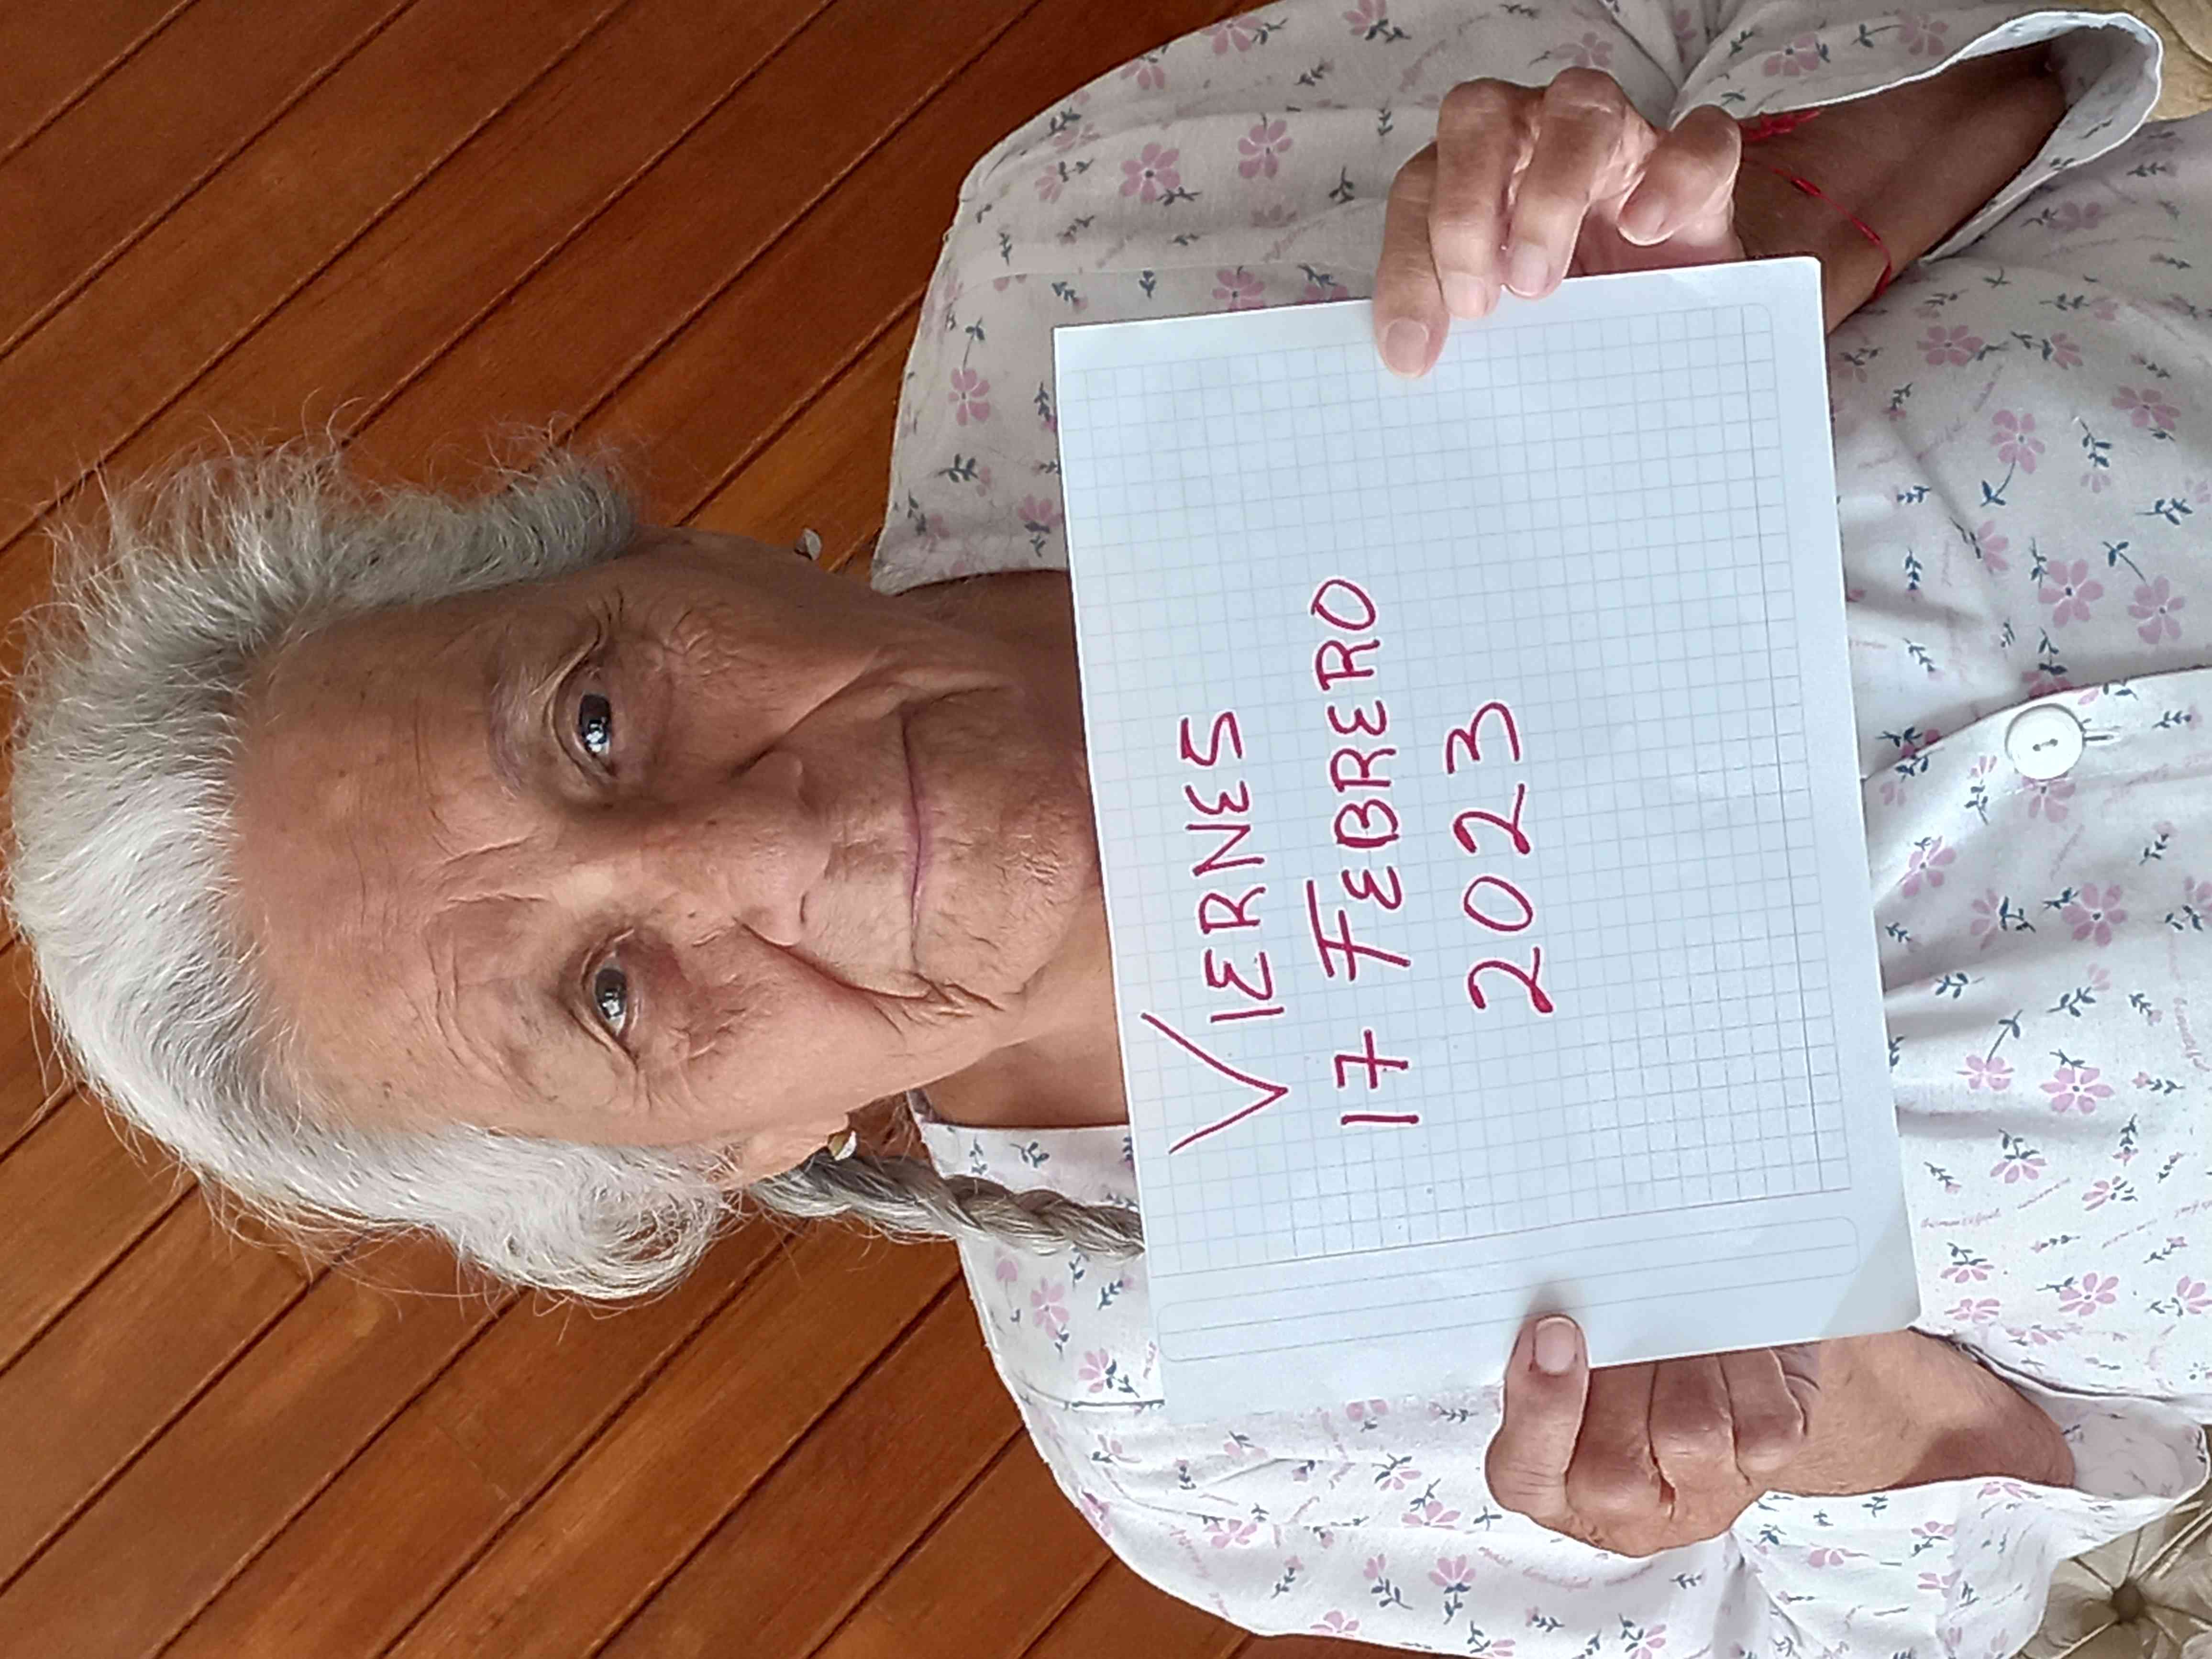 VIERNES
17 FEBRERO
2023